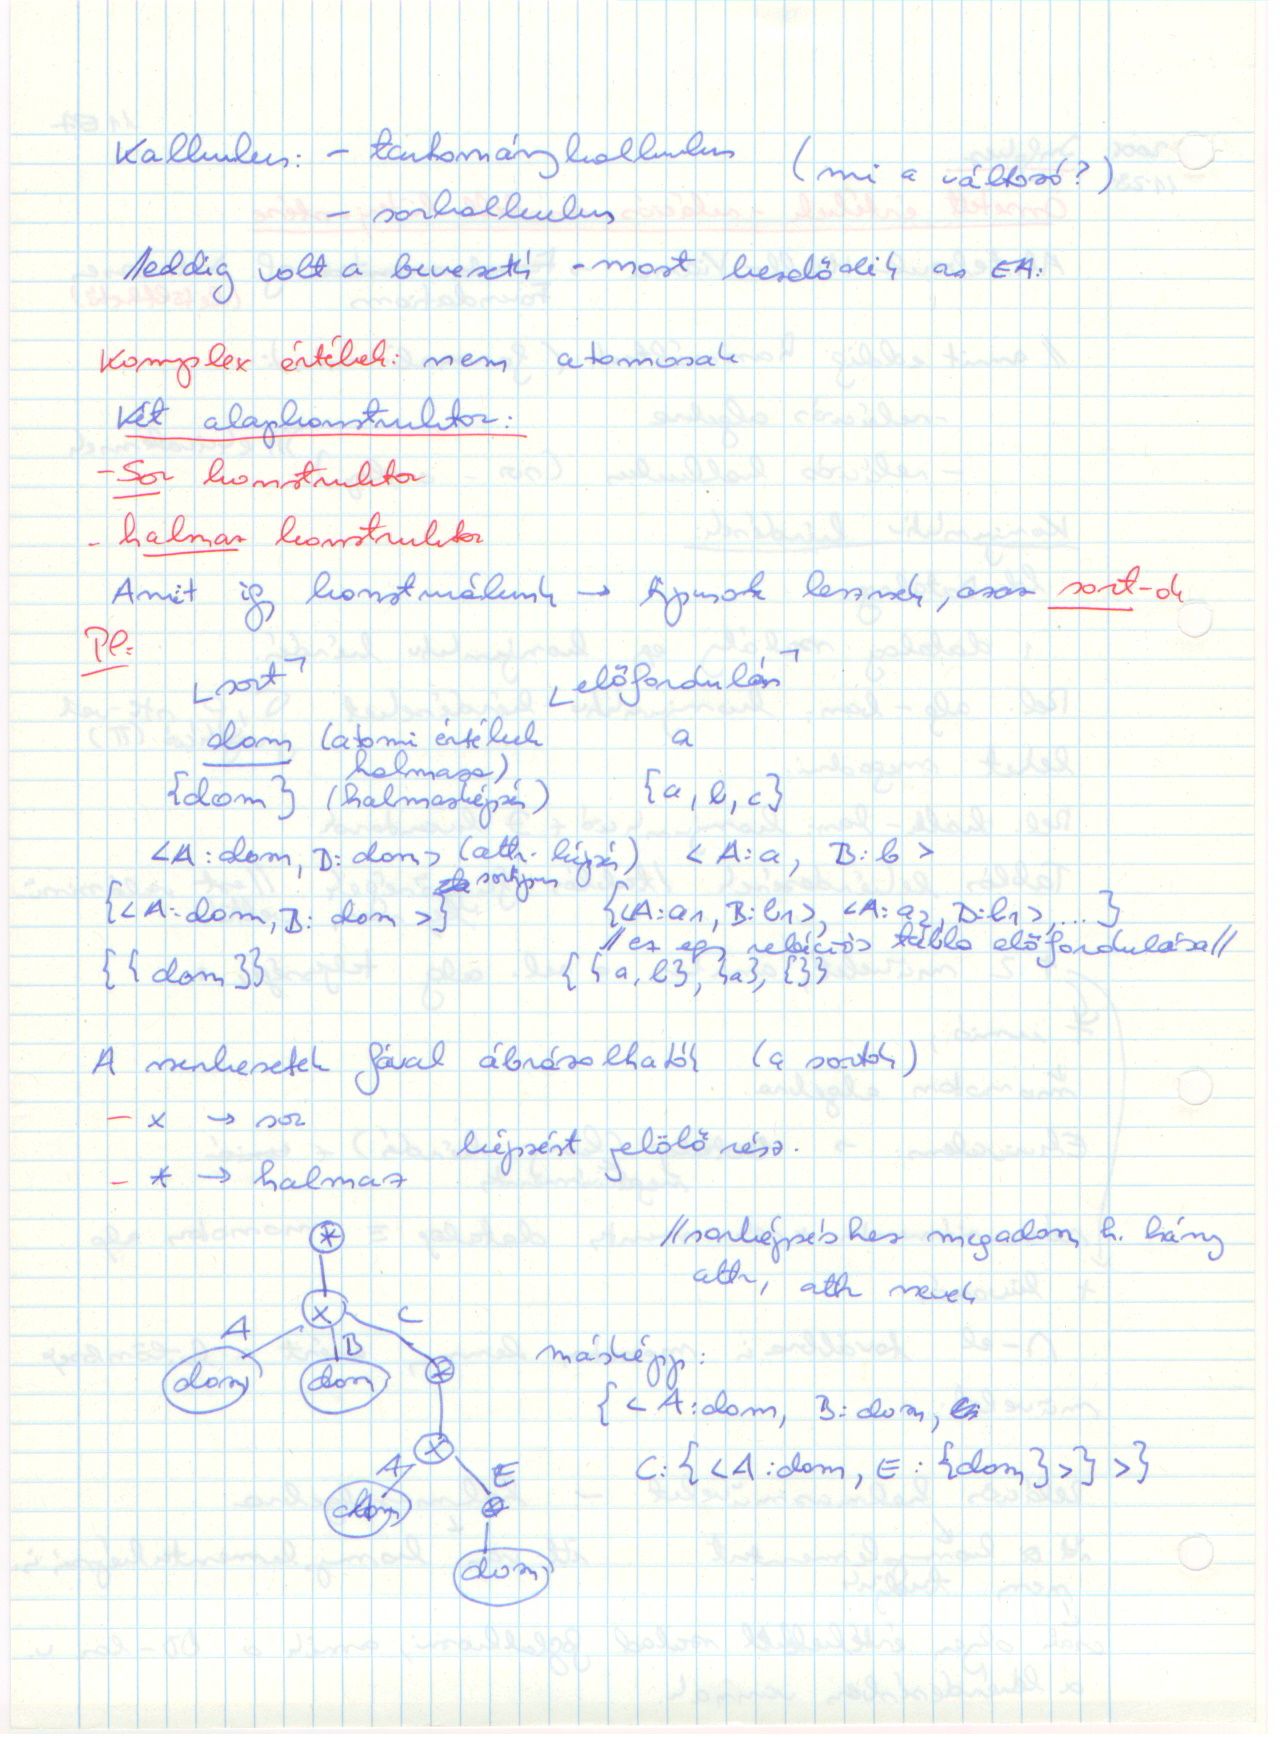 Kalkulus: - tartománykalkulus (mi a változó?)
- sorkalkulus
//eddig volt a bevezető - most kezdődik az EA.
Komplex értékek: nem atomosak
Két alapkonstruktor:
- Sor konstruktor
- halmaz konstruktor
Amit így konstruálunk → típusok lesznek, azaz sort-ok
Pl:
sort előfordulás
dom (atomi értékek halmaza) a
{dom} (halmazképzés) {a, b, c}
<A:dom, B:dom> (attr. képzés) <A:a, B:b>
sortípus
{<A:dom, B:dom>} {<A:a1, B:b1>, <A:a2, B:b1>, ...}
//ez egy relációs tábla előfordulása//
{{dom}} {{a, b}, {a}, {}}
A szerkezetek fával ábrázolhatók (a sortok)
- x → sor
képzést jelölő rész.
- * → halmaz
*
//sorképzéshez megadom, h. hány
attr, attr nevek
x
A B C
dom dom *
másképp:
{<A:dom, B:dom,
x
C:{<A:dom, E:{dom}>}>}
A E
dom *
dom